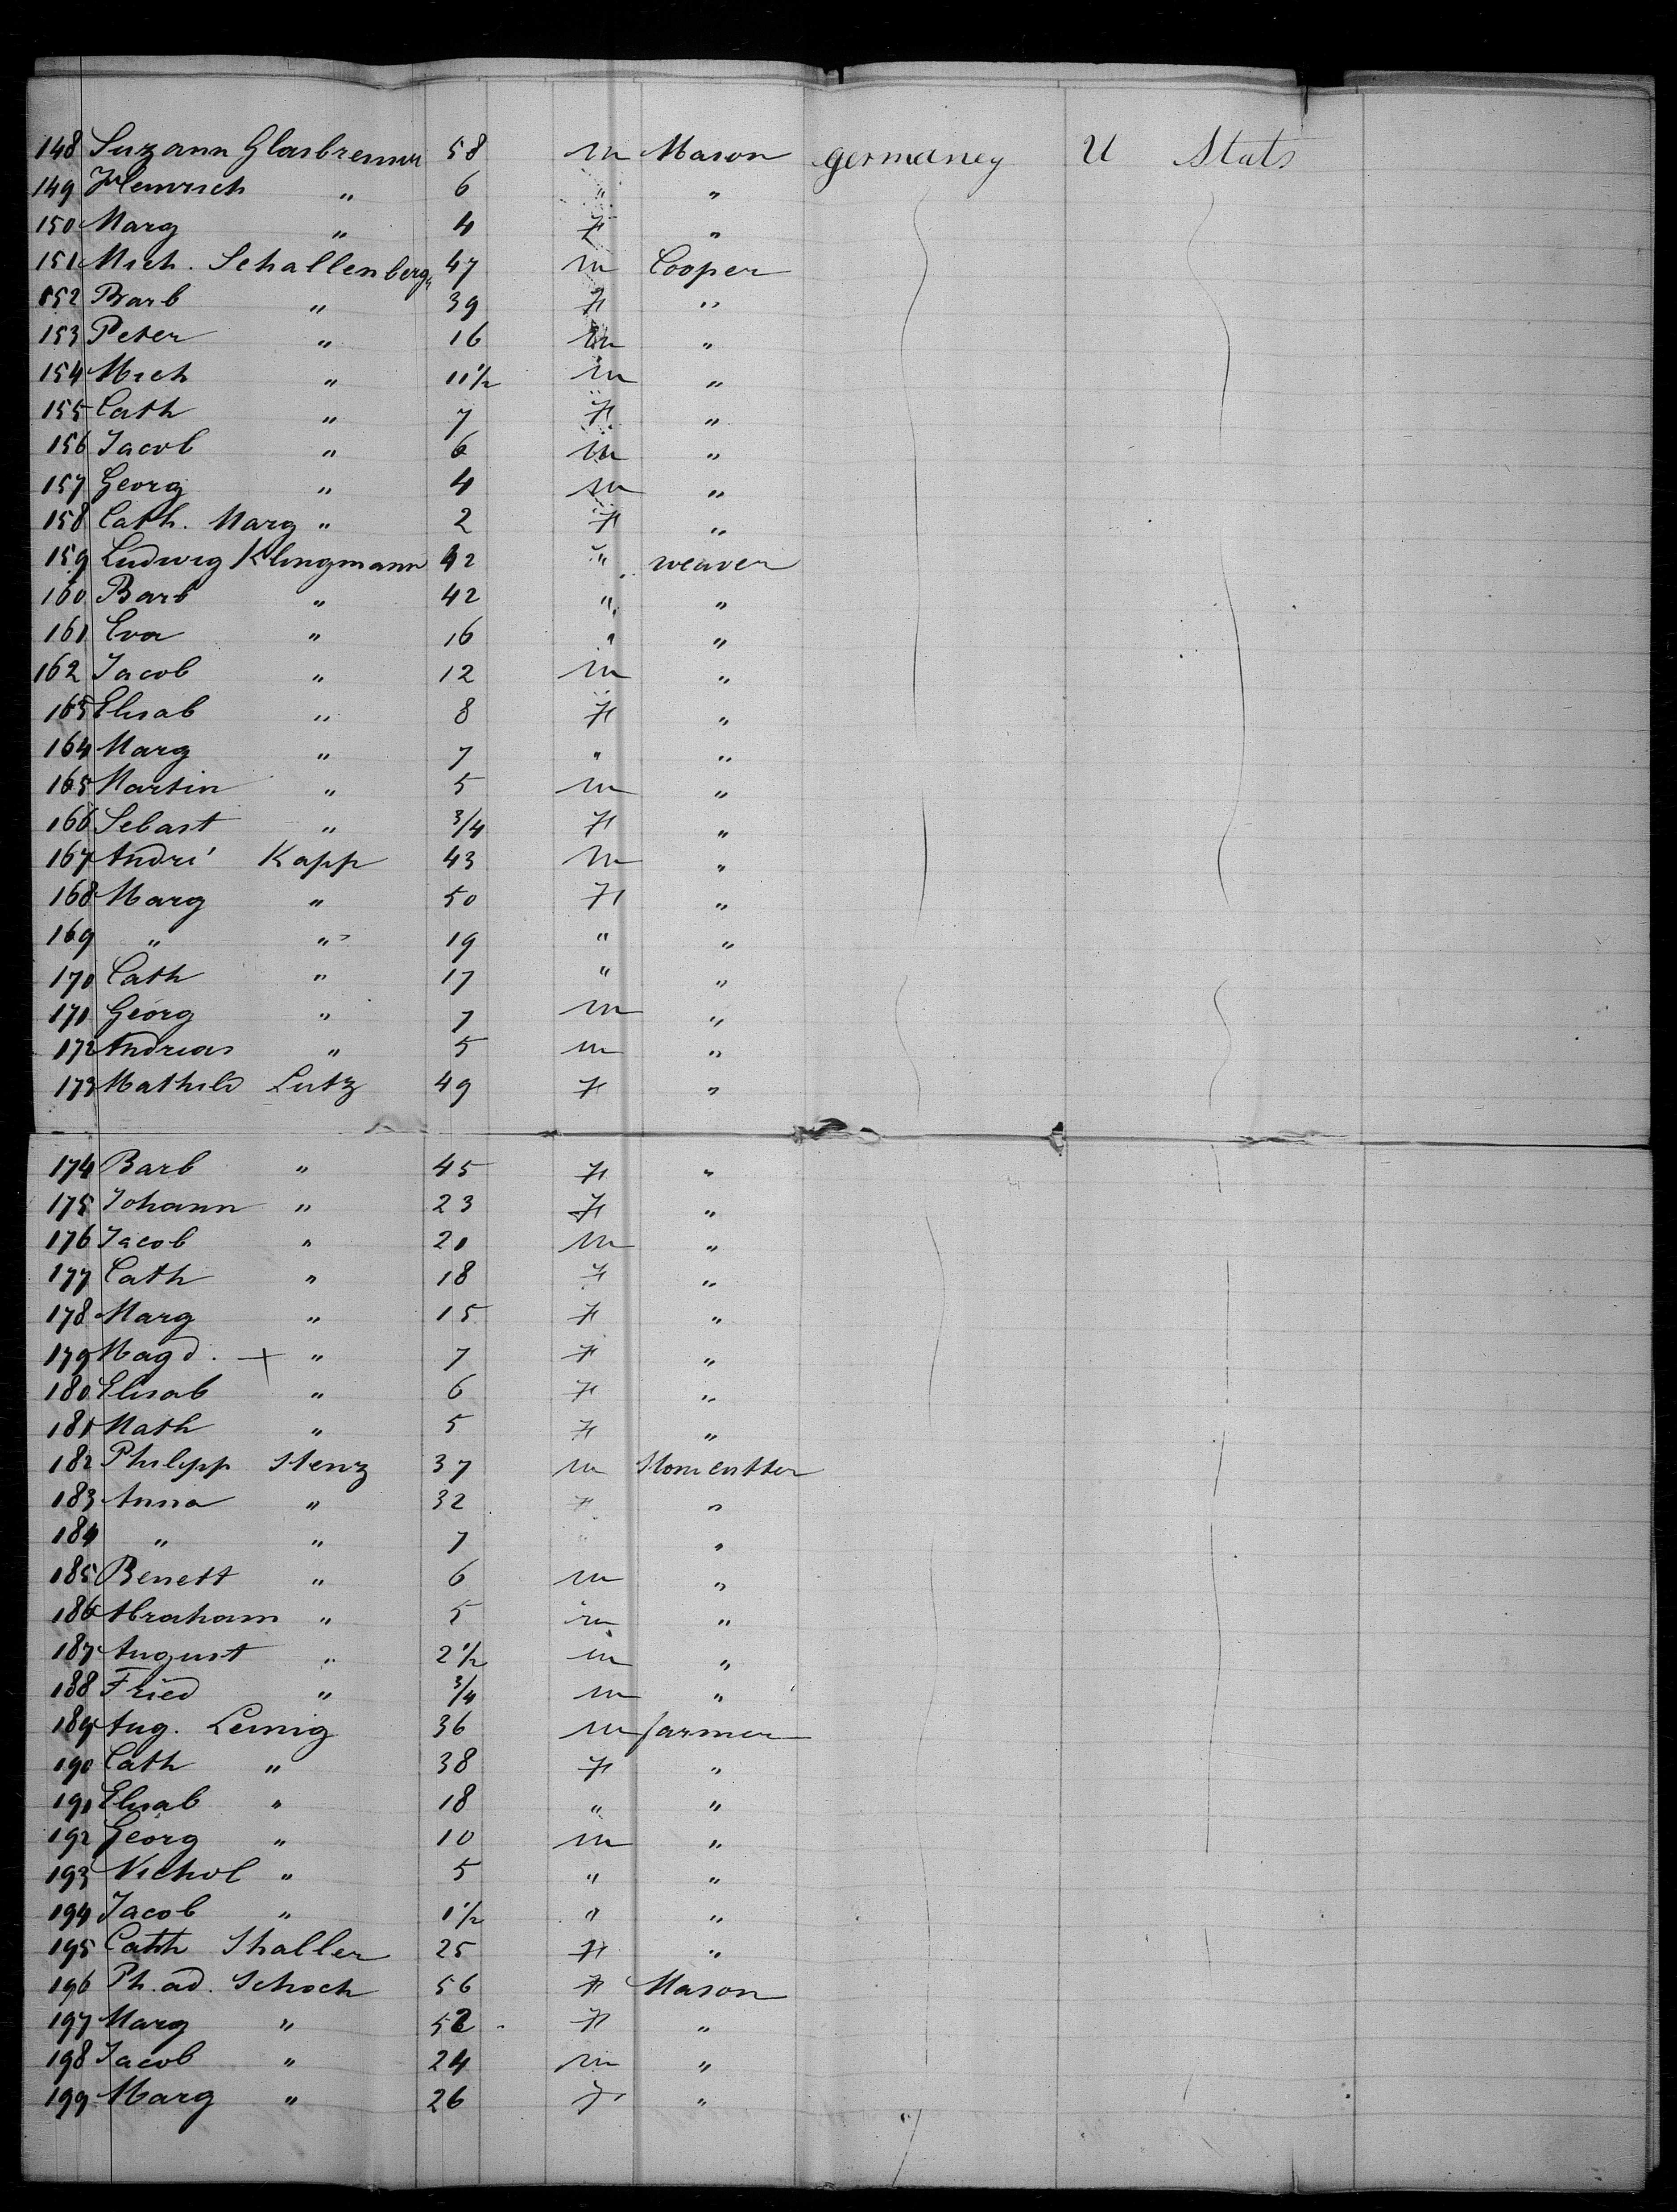 148 Suzann Glasbrenner 58 m Mason germaney U Stats
149 Heinrich " 6 " "
150 Marg " 4 F "
151 Mich. Schallenberg 47 m Cooper
152 Barb " 39 F "
153 Peter " 16 m "
154 Mich " 11 1/2 m "
155 Cath " 7 F "
156 Jacob " 6 m "
157 Georg " 4 m "
158 Cath. Marg " 2 F "
159 Ludwig Klingmann 42 " weaver
160 Barb " 42 " "
161 Eva " 16 " "
162 Jacob " 12 m "
163 Elisab " 8 F "
164 Marg " 7 " "
165 Martin " 5 m "
166 Sebast " 3/4 F "
167 Andri Kapp 43 m "
168 Marg " 50 F "
169 " " 19 " "
170 Cath " 17 " "
171 Georg " 7 m "
172 Andreas " 5 m "
173 Mathild Lutz 49 F "
174 Barb " 45 F "
175 Johann " 23 F "
176 Jacob " 21 m "
177 Cath " 18 F "
178 Marg " 15 F "
179 Magd. + " 7 F "
180 Elisab " 6 F "
181 Math " 5 F "
182 Philipp Stenz 37 m Stone cutter
183 Anna " 32 F "
184 " " 7 "
185 Benett " 6 m "
186 Abraham " 5 m "
187 August " 2 1/2 m "
188 Fried " 3/4 m "
189 Aug. Leinig 36 m farmer
190 Cath " 38 F "
191 Elisab " 18 " "
192 Georg " 10 m "
193 Nichol " 5 " "
194 Jacob " 1 1/2 " "
195 Cath Shaller 25 F "
196 Ph. ad. Schoch 56 F Mason
197 Marg " 52 F "
198 Jacob " 24 m "
199 Marg " 26 F "